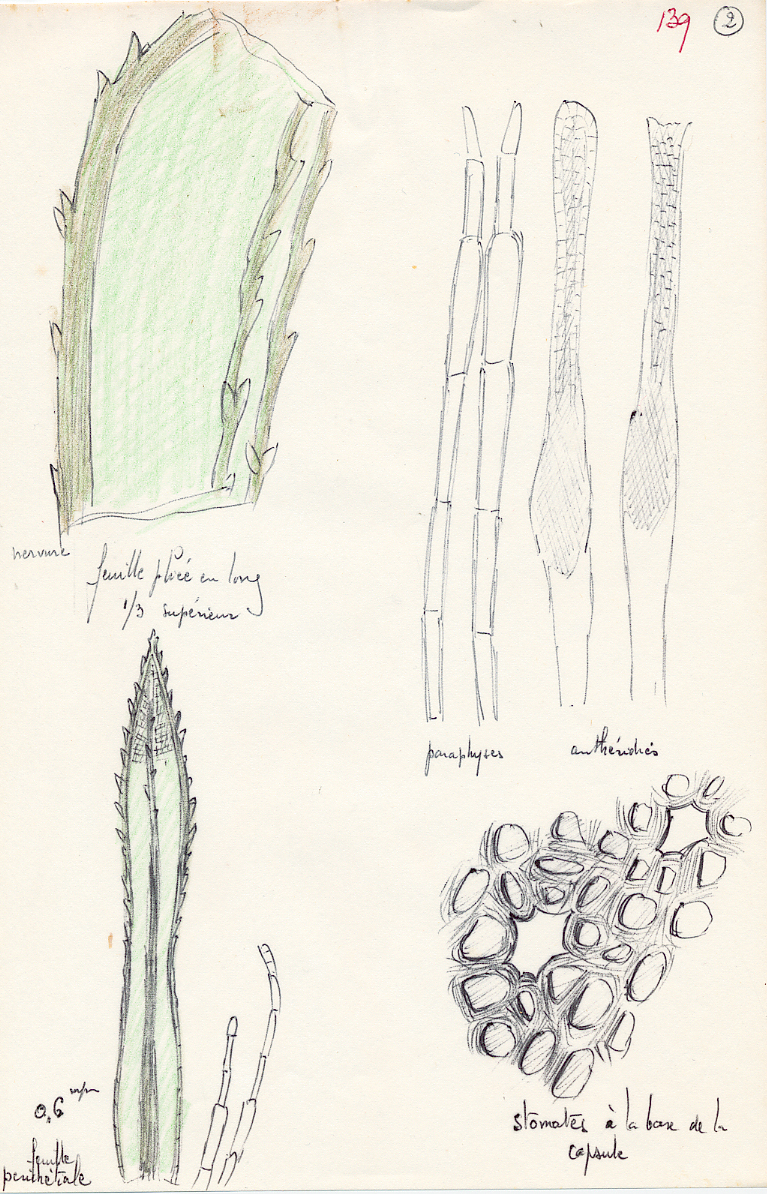 139 2
nervure
feuille pliée en long
1/3 supérieur
paraphyses
anthéridies
0,6 mm
feuille
périchétiale
stomates à la base de la
capsule